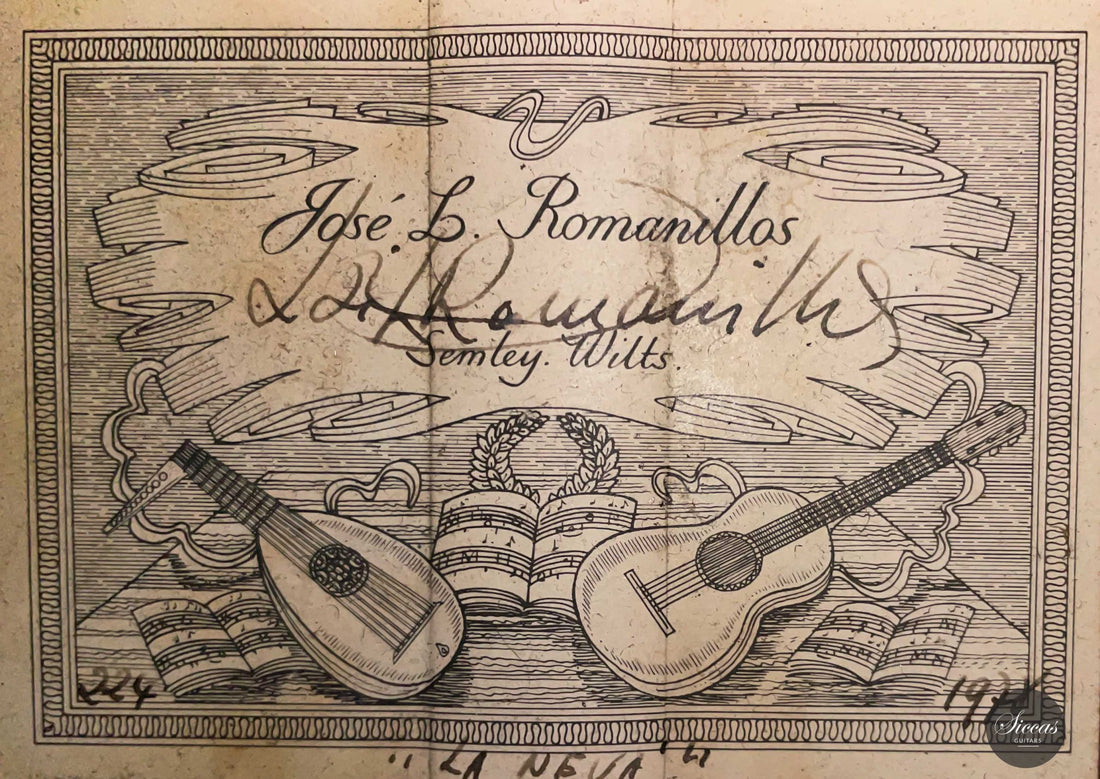 José L. Romanillos
Romanillos
Semley. Wilts.
224
Siccas
GUITARS
"LA NEVA"